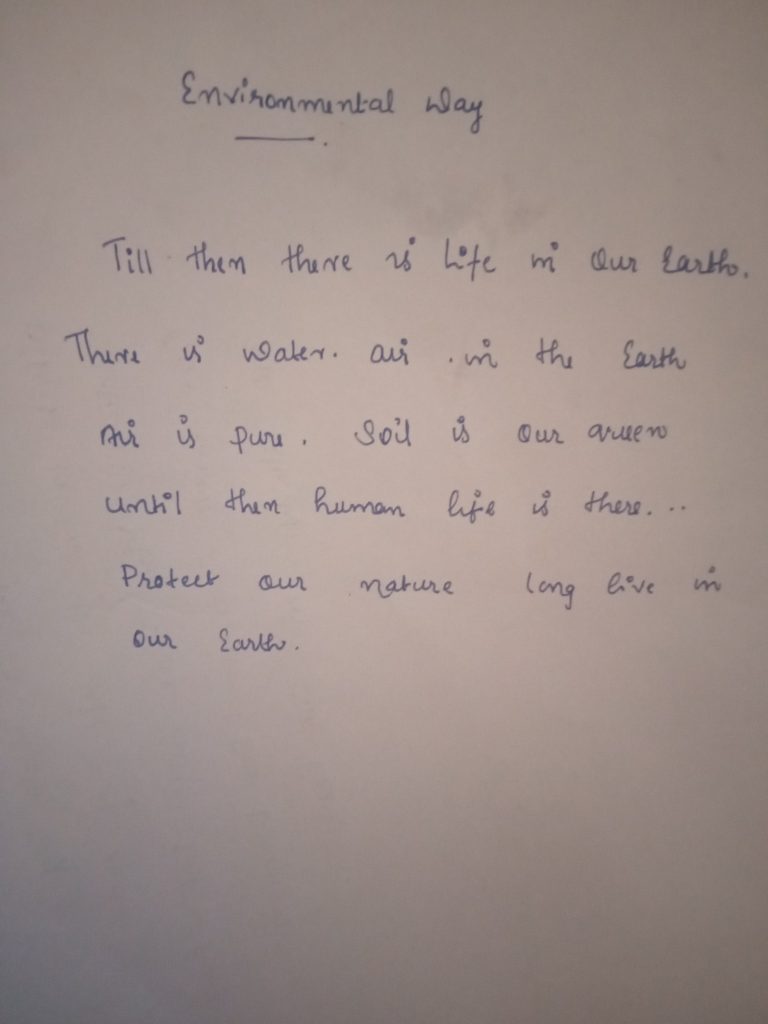 Environmental Day
Till then there is Life in Our Earth.
There is water. air . in the Earth
Air is pure. Soil is our green
until then human life is there...
Protect our nature long live in
our Earth.